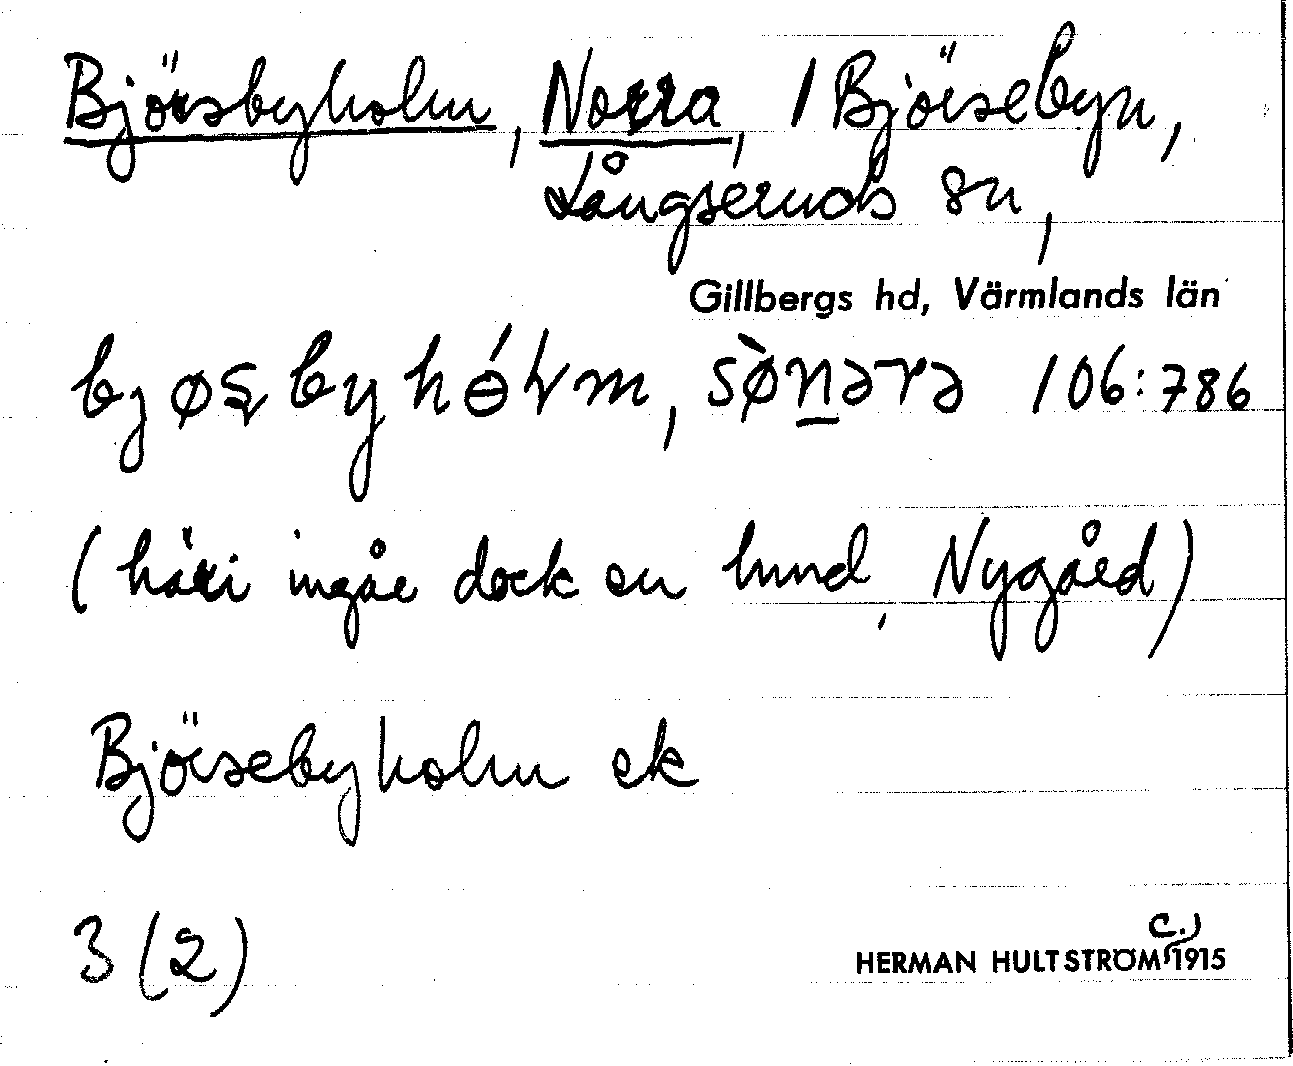 Björsbyholm, Norra, / Björsebyn,
Långseruds sn,
Gillbergs hd, Värmlands län
106:786
(häri ingår dock en lund, Nygård)
Björsebyholm ek
3 (2)
HERMAN HULTSTRÖM c. 1915